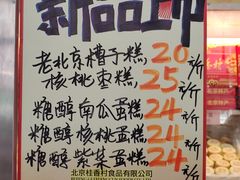 新品上市
老北京槽子糕 20元/斤
核桃枣糕 25元/斤
糖醇南瓜蛋糕 24元/斤
糖醇核桃蛋糕 24元/斤
糖醇紫菜蛋糕 24元/斤
北京桂香村食品有限公司